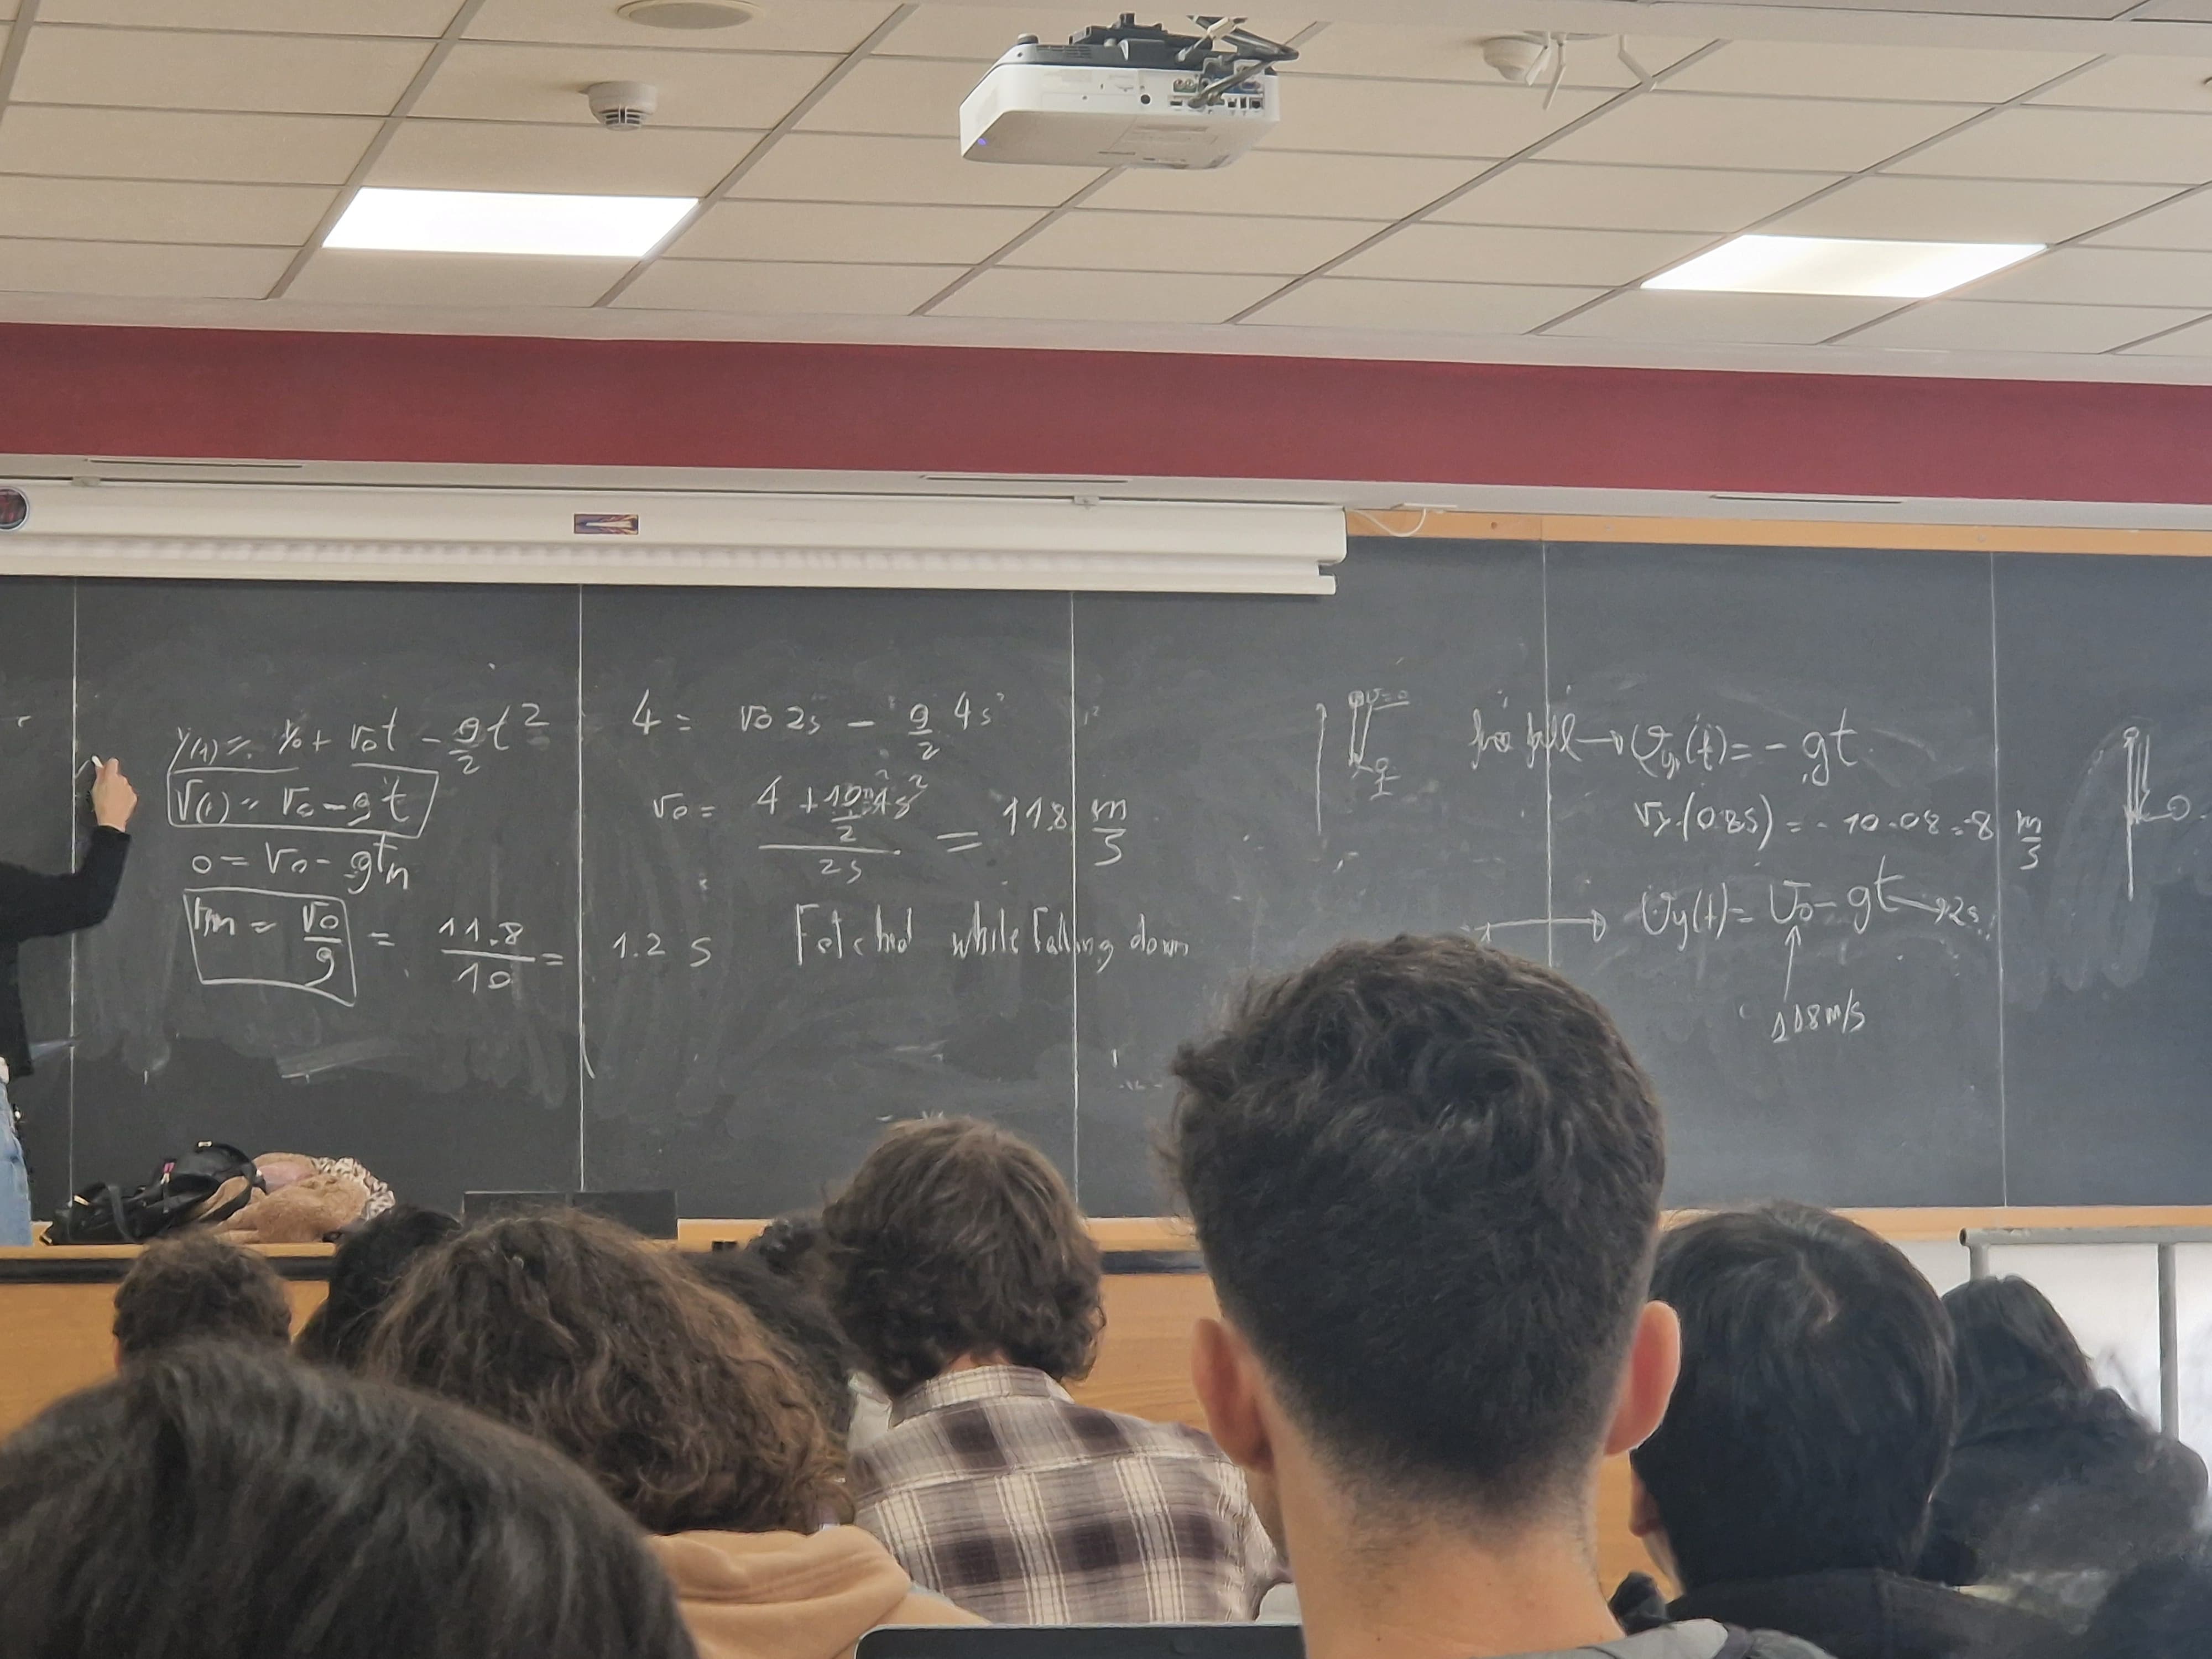 y(t) = y₀ + v₀t - g/2 t²
v(t) = v₀ - gt
0 = v₀ - gtm
tm = v₀/g = 11.8/10 = 1.2 s
4 = v₀ 2s - g/2 4s²
v₀ = (4 + 10/2 4s²)/2s = 11.8 m/s
Fetched while falling down
v=0
free fall → vy(t) = - gt
vy(0.8s) = - 10·0.8 = -8 m/s
vy(t) = v₀ - gt → 2s
11.8 m/s